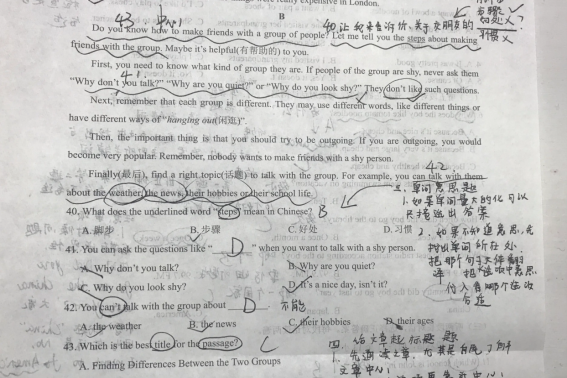 really expensive in London.
B
43
中心
40.让我来告诉你,关于交朋友的
Do you know how to make friends with a group of people? Let me tell you the steps about making
friends with the group. Maybe it's helpful(有帮助的) to you.
First, you need to know what kind of group they are. If people of the group are shy, never ask them
41
"Why don't you talk?" "Why are you quiet?" or "Why do you look shy?" They don't like such questions.
Next, remember that each group is different. They may use different words, like different things or
have different ways of "hanging out(闲逛)".
Then, the important thing is that you should try to be outgoing. If you are outgoing, you would
become very popular. Remember, nobody wants to make friends with a shy person.
42
Finally(最后), find a right topic(话题) to talk with the group. For example, you can talk with them
about the weather, the news, their hobbies or their school life.
40. What does the underlined word "steps" mean in Chinese? B
A. 脚步 B. 步骤 C. 好处 D. 习惯
41. You can ask the questions like " D " when you want to talk with a shy person.
A. Why don't you talk? B. Why are you quiet?
C. Why do you look shy? D. It's a nice day, isn't it?
42. You can't talk with the group about D 不能
A. the weather B. the news C. their hobbies D. their ages
43. Which is the best title for the passage? C
A. Finding Differences Between the Two Groups
三、单词意思题
1.如果单词量大的化可以
直接选出答案
2.如果不知道意思,先
找出单词所在处
把那个句子大体翻
译 把 选项意思
代入看哪个 选项
合适
四、给文章起标题题
1.先通读文章,尤其是自
文章中心